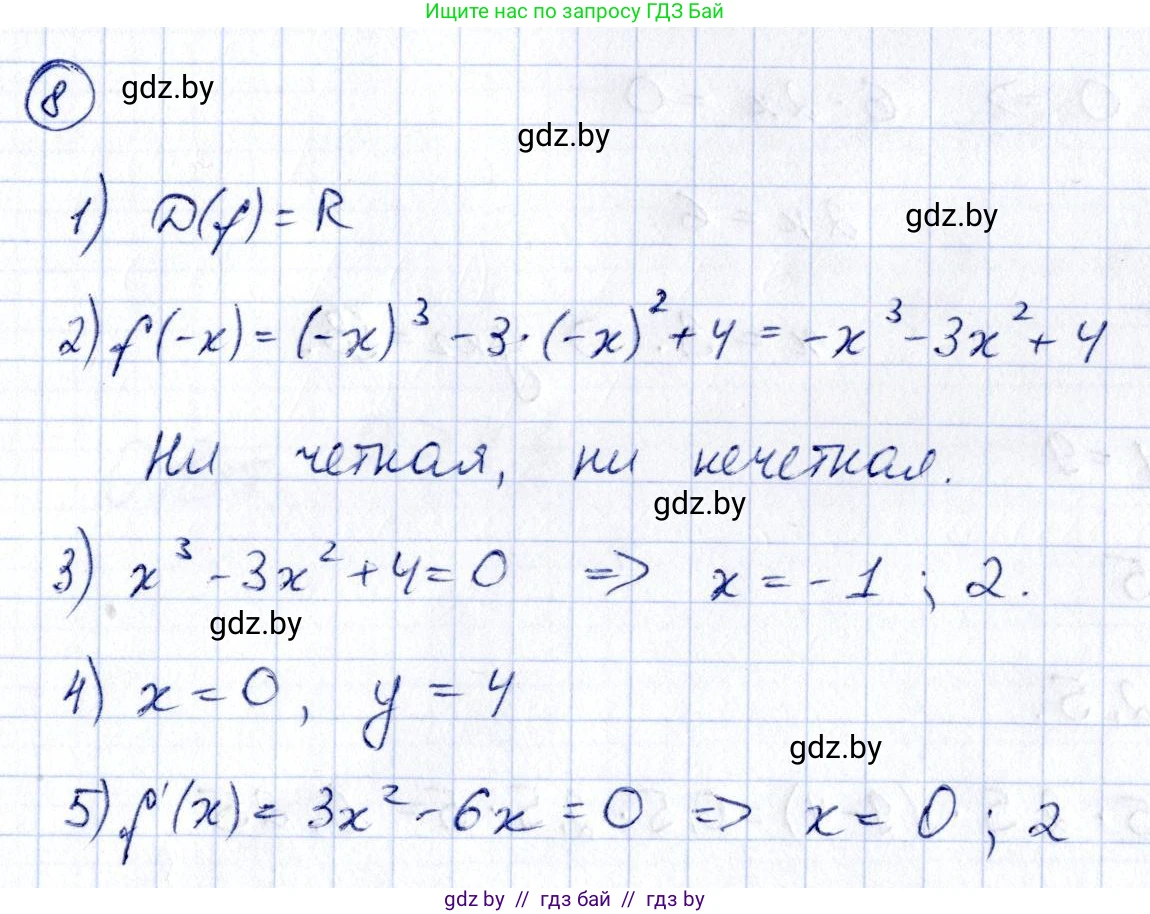 Ищите нас по запросу ГДЗ Бай
8 gdz.by
gdz.by
1) D(f) = R
gdz.by
2) f(-x) = (-x)³ - 3·(-x)² + 4 = -x³ - 3x² + 4
Ни четная, ни нечетная.
gdz.by
3) x³ - 3x² + 4 = 0 => x = -1 ; 2.
gdz.by
4) x = 0, y = 4
gdz.by
5) f'(x) = 3x² - 6x = 0 => x = 0 ; 2
gdz.by // гдз бай // гдз by